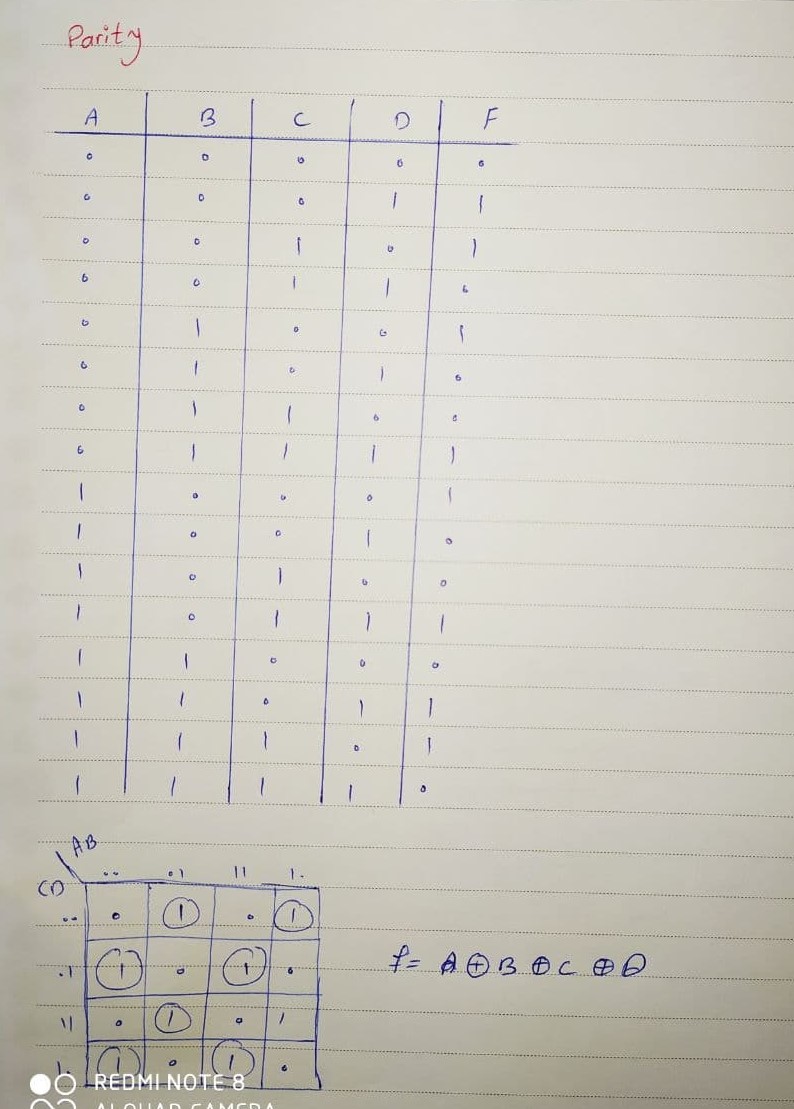 Parity
A B C D F
0 0 0 0 0
0 0 0 1 1
0 0 1 0 1
0 0 1 1 0
0 1 0 0 1
0 1 0 1 0
0 1 1 0 0
0 1 1 1 1
1 0 0 0 1
1 0 0 1 0
1 0 1 0 0
1 0 1 1 1
1 1 0 0 0
1 1 0 1 1
1 1 1 0 1
1 1 1 1 0
AB
00 01 11 10
CD
00 0 1 0 1
01 1 0 1 0
f= A⊕B⊕C⊕D
11 0 1 0 1
10 1 0 1 0
REDMI NOTE 8
AI QUAD CAMERA